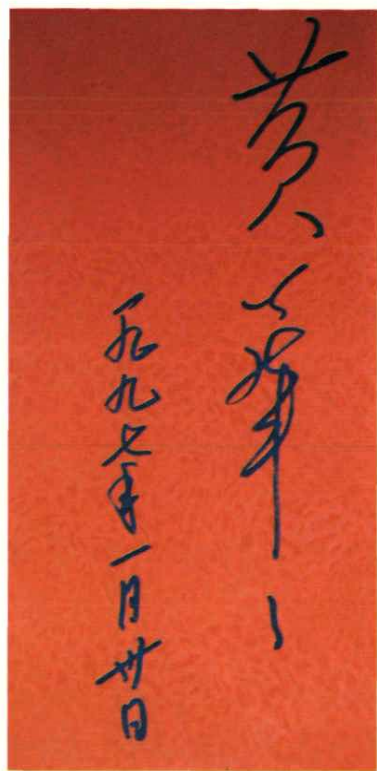 黄
一九九七年一月卅日